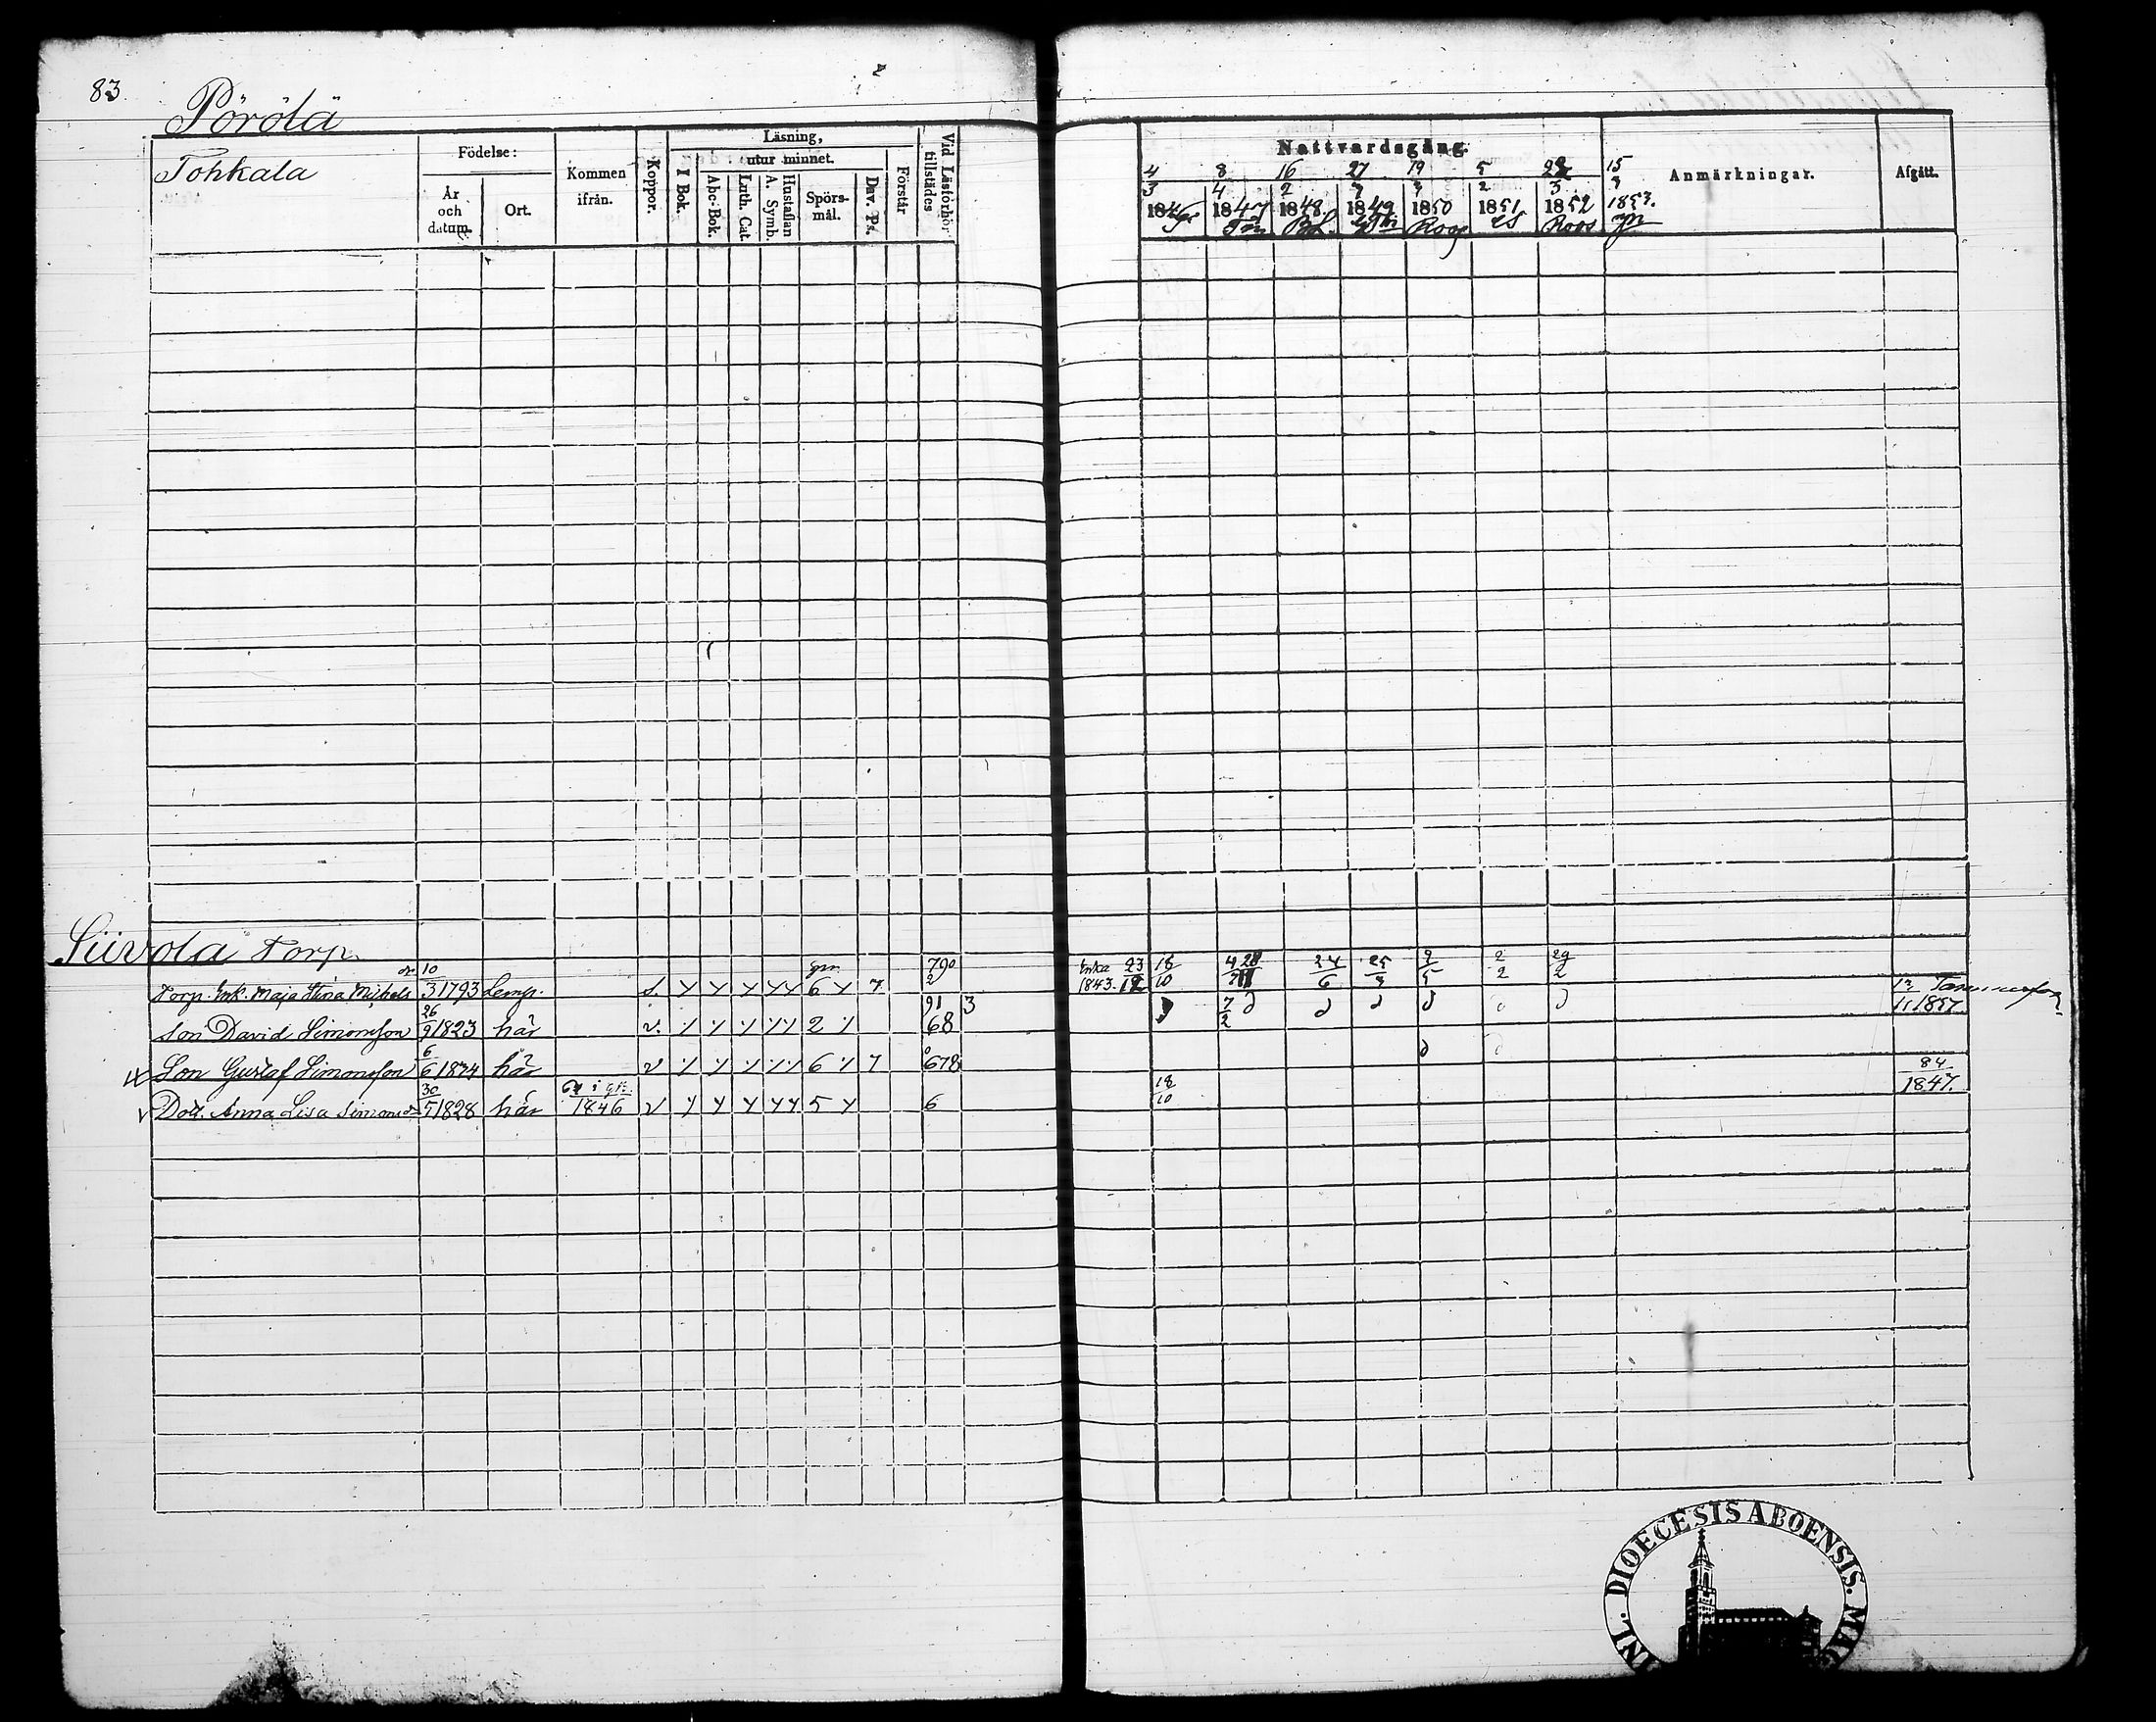 83
Pörölä
Tohkala
Födelse:
År och datum.
Ort.
Kommen ifrån.
Koppor.
Läsning,
utur minnet.
I Bok.
Abc-Bok.
Luth. Cat.
Hustaflan A. Symb.
Spörsmål.
Dav. Ps.
Förstår
Vid Läsförhör tillstädes
Nattvardsgång.
4 8 16 27 19 5 15
3 4 2 3 3 2 3
1847 1848 1849 1850 1851 1852 1853.
Roos Roos
Anmärkningar.
Afgått.
Siivola Torp.
Torp. Enk. Maja Stina Mijkels dr 10/3 1793 Lemp. 6 7 790 2 Enka 1843. 23/12 18/10 24/6 25/3 2/5 2/2 29/2
Son David Simonsson 26/9 1823 här v. 2 91 68 3 7/2 11 1857.
Son Gustaf Simonsson 6/6 1824 här v 6 7 678
Dott. Anna Lisa Simonsdr 30/5 1828 här 1846 v 5 6 18/10 84/1847.
DIOECESIS ABOENSIS.